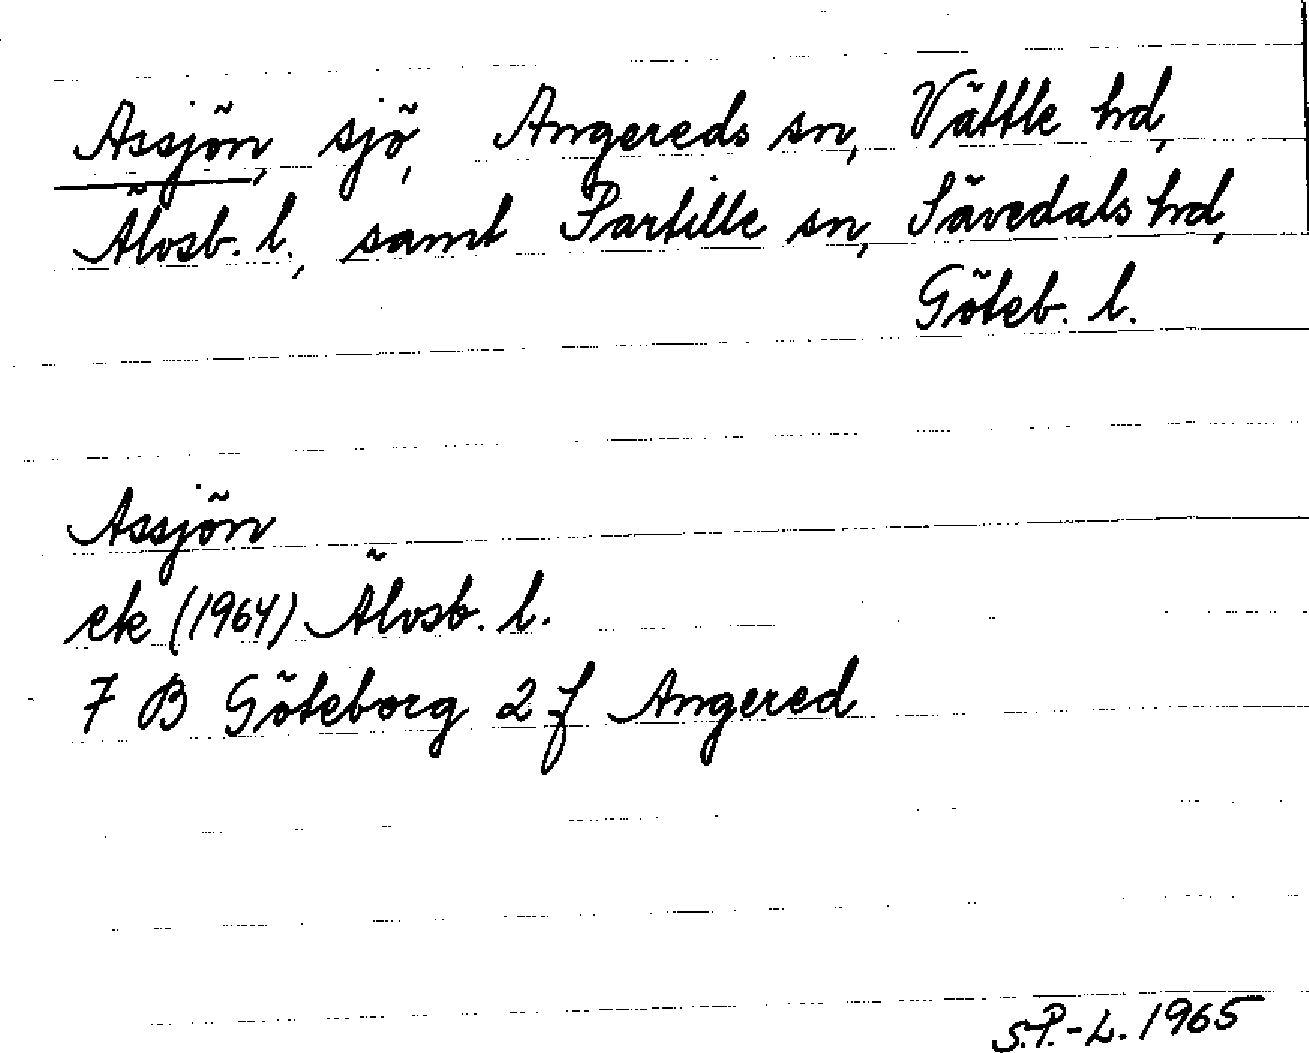 Assjön, sjö, Angereds sn, Vättle hd,
Älvsb. l., samt Partille sn, Sävedals hd,
Göteb. l.
Assjön
ek (1964) Älvsb. l.
7 B Göteborg 2 f Angered
S.P.-L. 1965